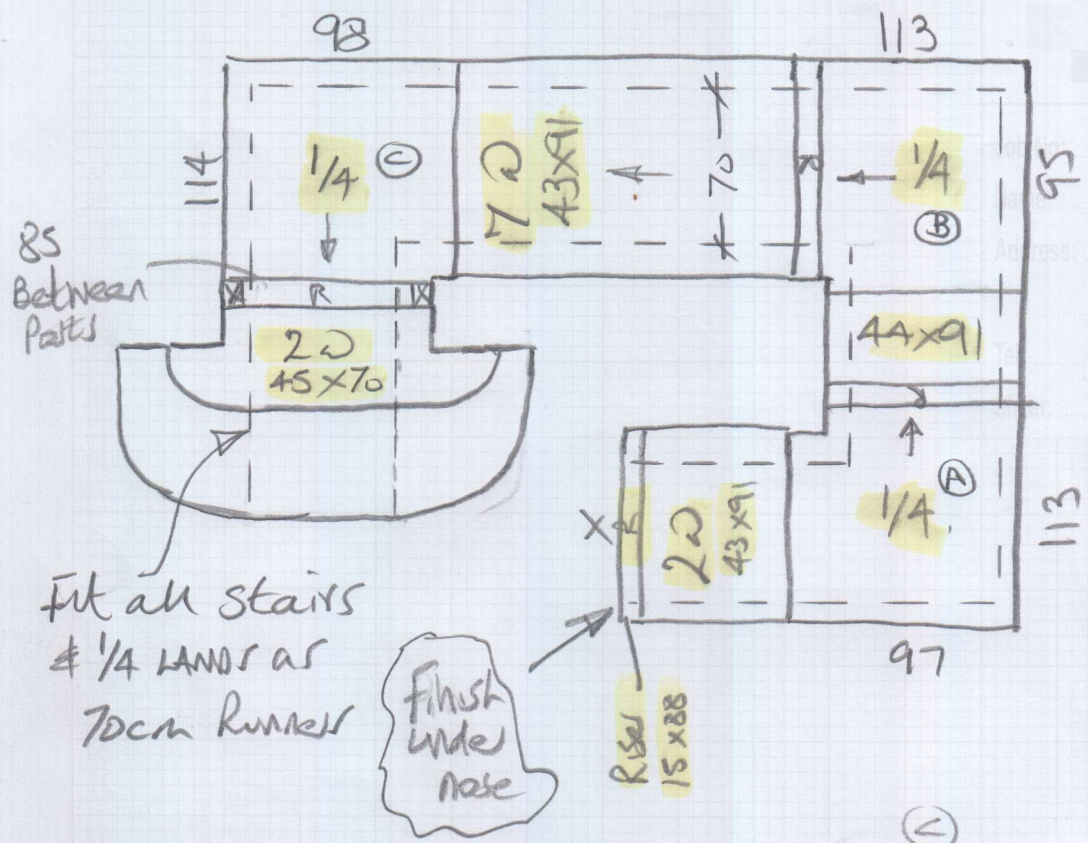 98
113
1/4
C
7 @
43x91
70
R
1/4
B
95
114
85
Between
Posts
R
2 @
45 x 70
44x91
A
1/4
113
X
R
2 @
43 x 91
97
Fit all stairs
& 1/4 LANDS as
70cm Runner
Finish
under
nose
Riser
15 x 88
C